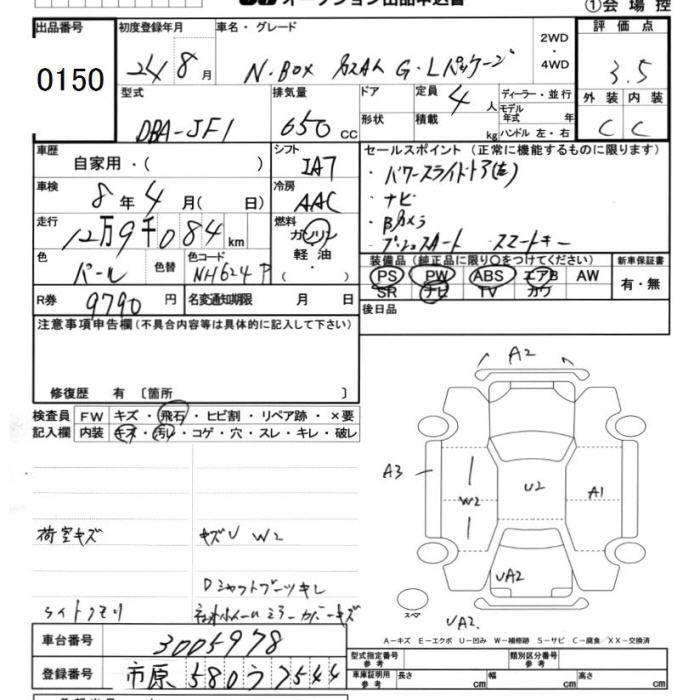 オークション出品申込書
①会場控
出品番号 初度登録年月 車名・グレード 2WD・4WD 評価点
0150
24年8月 N-BOX カスタム G・Lパッケージ 3.5
型式 排気量 ドア 定員 ディーラー・並行 外装 内装
DBA-JF1 650cc 形状 4人 積載 kg モデル年式 年式 ハンドル 左・右 C C
車歴 シフト セールスポイント(正常に機能するものに限ります)
自家用・( ) IAT
・パワースライドドア(左)
車検 冷房
8年4月( 日) AAC
・ナビ
・Bカメラ
走行 燃料
12万9千084km ガソリン 軽油・( )
・プッシュスタート ・スマートキー
色 色替 色コード 装備品(純正品に限り○をつけてください) 新車保証書
パール NH624P PS PW ABS エアB AW 有・無
SR ナビ TV カワ
R券 9790円 名変通知期限 月 日 後日品
注意事項申告欄(不具合内容等は具体的に記入して下さい)
修復歴 有〔箇所 〕
検査員 FW キズ・飛石・ヒビ割・リペア跡・×要
記入欄 内装 キズ・汚レ・コゲ・穴・スレ・キレ・破レ
A2
A3 W2 U2 A1
UA2
スペア
UA2.
荷室キズ キズU W2
Dシャフトブーツキレ
ライトクモリ ミラーカバーキズ
A-キズ E-エクボ U-凹み W-補修跡 S-サビ C-腐食 XX-交換済
車台番号 3005978
型式指定番号 参考 類別区分番号 参考
登録番号 市原 580 う 7544
車庫証明用 参考 長さ cm 幅 cm 高さ cm